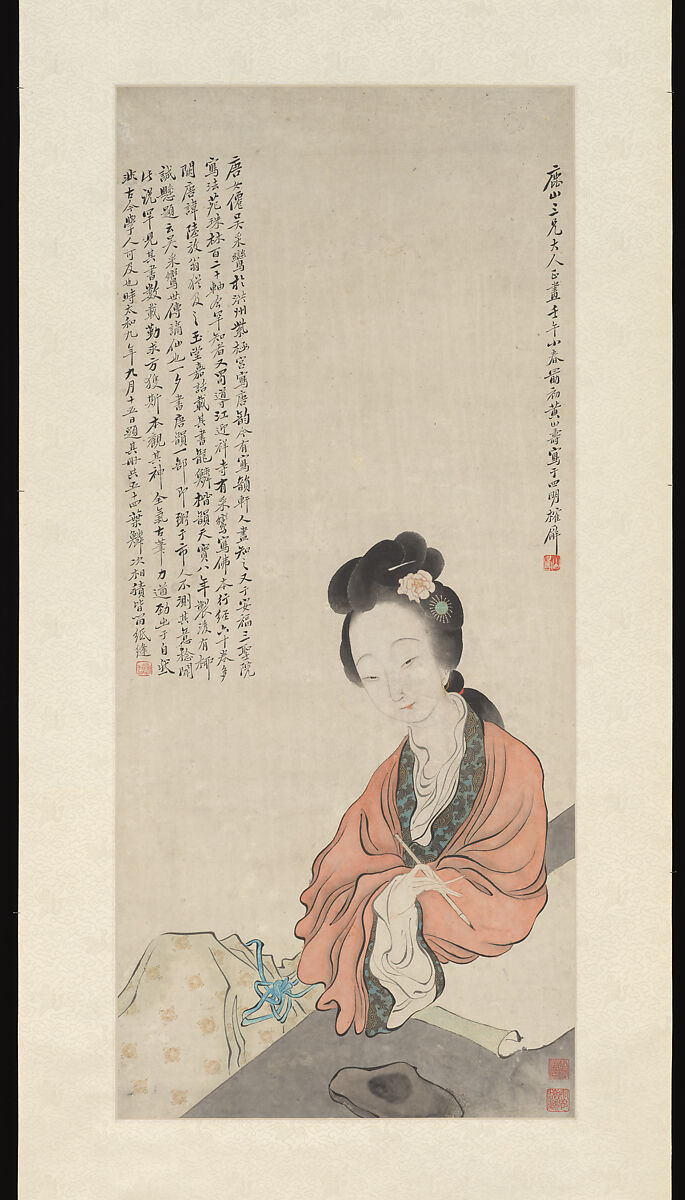 鹿山三兄大人正畫壬午小春罥初黃山壽寫于四明榷廨
唐女僊吳采鸞於洪州紫極宮寫唐韵今有寫韻軒人盡知之又于安福三聖院
寫法苑珠林百二十軸名罕知者又蜀導江迎祥寺有采鸞寫佛本行經六十卷多
闕唐諱陸放翁猶及之玉堂嘉話載其書龍鱗楷韻天寶八年製後有柳
誠懸題云吳采鸞世傳謫仙也一夕書唐韻一部即鬻于市人不測其意稔聞
此說罕見其書數載勤求方獲斯本觀其神全氣古筆力遒勁出于自然
非古今學人可及也時太和九年九月十五日題其冊共五十四葉鱗次相積皆留紙縫